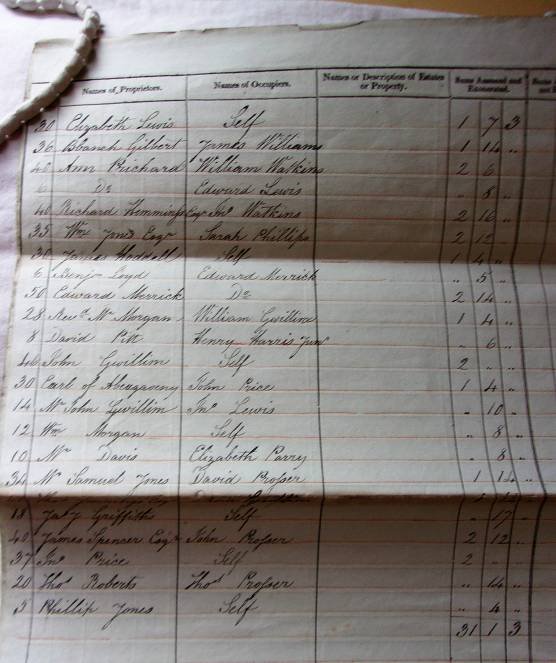 Names of Proprietors. Names of Occupiers. Names or Description of Estates or Property. Sums Assessed and Exonerated.
30 Elizabeth Lewis Self 1 7 3
36 Blanch Gilbert James Williams 1 14 "
40 Ann Prichard William Watkins 2 6
6 Do Edward Lewis " 8 "
40 Richard Hemmings Esqr Jno Watkins 2 16 "
35 Wm Jones Esqr Sarah Phillips 2 12
30 James Hoddell Self 1 4 "
6 Benjn Loyd Edward Merrick " 5 "
50 Edward Merrick Do 2 14 "
28 Revd Mr Morgan William Gwillim 1 4 "
8 David Pitt Henry Harris Junr " 6 "
46 John Gwillim Self 2 " "
30 Earl of Abergaveny John Price 1 4 "
14 Mr John Gwillim Jno Lewis " 10 "
12 Wm Morgan Self " 8 "
10 Mr Davis Elizabeth Parry " 8 "
34 Mr Samuel Jones David Prosser 1 14 "
18 Griffith Self " 17 "
40 James Spencer Esqr John Prosser 2 12 "
37 Jno Price Self 2 "
20 Thos Roberts Thos Prosser " 14 "
5 Phillip Jones Self " 4 "
31 1 3